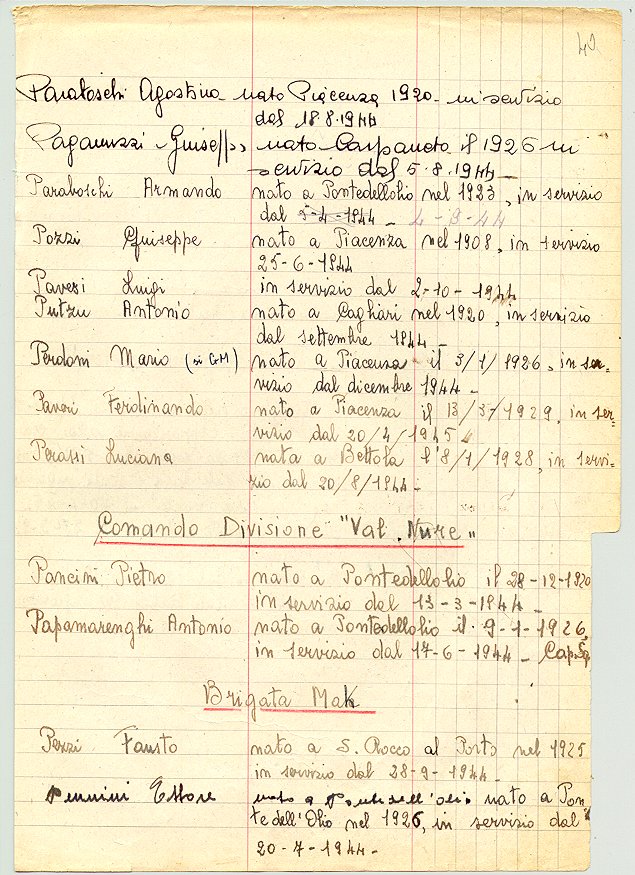 40
Paraboschi Agostino nato Piacenza 1920 in servizio
dal 18.8.1944
Paganuzzi Guiseppe nato Carpaneto il 1926 in
servizio dal 5.8.1944
Paraboschi Armando nato a Pontedellolio nel 1923, in servizio
dal 5-4-1944 - 4-9-44
Pozzi Guiseppe nato a Piacenza nel 1908, in servizio
25-6-1944
Pavesi Luigi in servizio dal 2-10-1944
Putzu Antonio nato a Cagliari nel 1920, in servizio
dal settembre 1944 -
Perdoni Mario (si GM) nato a Piacenza il 3/1/1926, in ser-
vizio dal dicembre 1944 -
Paveri Ferdinando nato a Piacenza il 13/3/1929, in ser-
vizio dal 20/4/1945
Perassi Luciana nata a Bettola l'8/1/1928, in servi-
zio dal 20/8/1944 -
Comando Divisione "Val Nure"
Pancini Pietro nato a Pontedellolio il 28-12-1920
in servizio dal 13-3-1944 -
Papamarenghi Antonio nato a Pontedellolio il 9-1-1926,
in servizio dal 17-6-1944 - Cap.Sq
Brigata Mak
Pezzi Fausto nato a S. Rocco al Porto nel 1925
in servizio dal 28-9-1944 -
Pennini Ettore nato a Pontedell'olio nato a Pon
te dell'Olio nel 1926, in servizio dal
20-7-1944 -